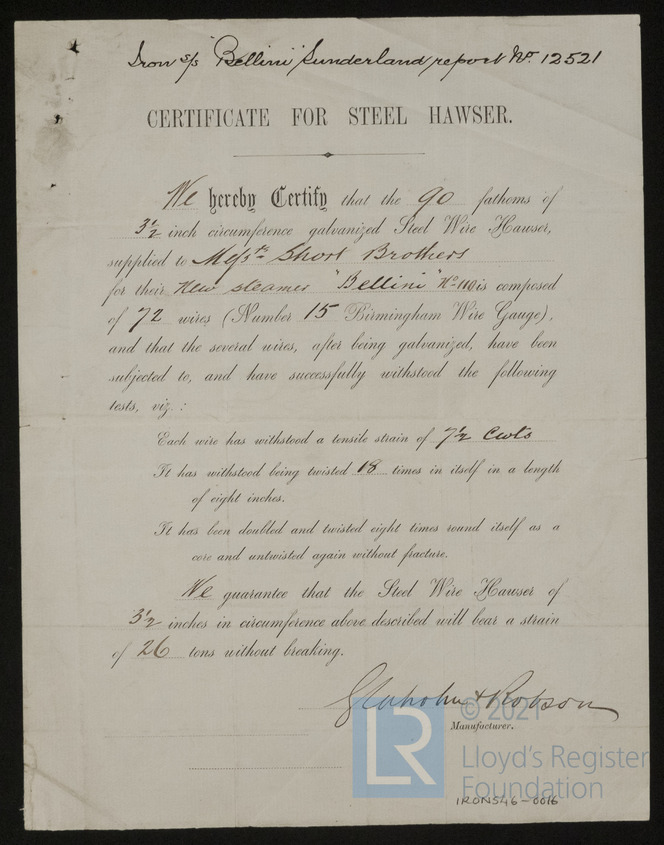 Iron s/s "Bellini" Sunderland report No. 12521
CERTIFICATE FOR STEEL HAWSER.
We hereby Certify that the 90 fathoms of
3½ inch circumference galvanized Steel Wire Hawser,
supplied to Messrs Short Brothers
for their New Steamer "Bellini" No 110 is composed
of 72 wires (Number 15 Birmingham Wire Gauge),
and that the several wires, after being galvanized, have been
subjected to, and have successfully withstood the following
tests, viz.:
Each wire has withstood a tensile strain of 7½ Cwts
It has withstood being twisted 18 times in itself in a length
of eight inches.
It has been doubled and twisted eight times round itself as a
core and untwisted again without fracture.
We guarantee that the Steel Wire Hawser of
3½ inches in circumference above described will bear a strain
of 26 tons without breaking.
Glaholm & Robson
Manufacturer.
© 2021
LR
Lloyd's Register
Foundation
IRON546-0016